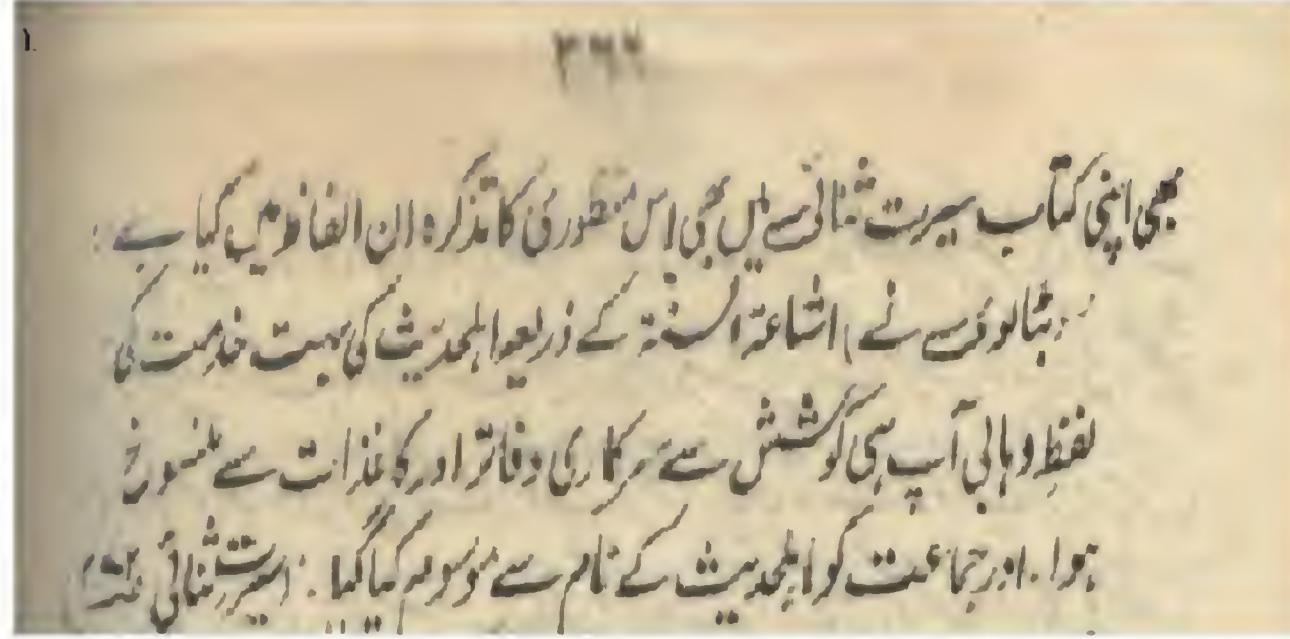 بھی اپنی کتاب سیرت ثنائی میں بھی اس منظوری کا تذکرہ ان الفاظ میں کیا ہے :
(بٹالوی نے) اشاعۃ السنۃ کے ذریعہ اہلحدیث کی بہت خدمت کی
لفظ وہابی آپ ہی کی کوشش سے سرکاری دفاتر اور کاغذات سے منسوخ
ہوا ۔ اور جماعت کو اہلحدیث کے نام سے موسوم کیا گیا ۔ (سیرت ثنائی